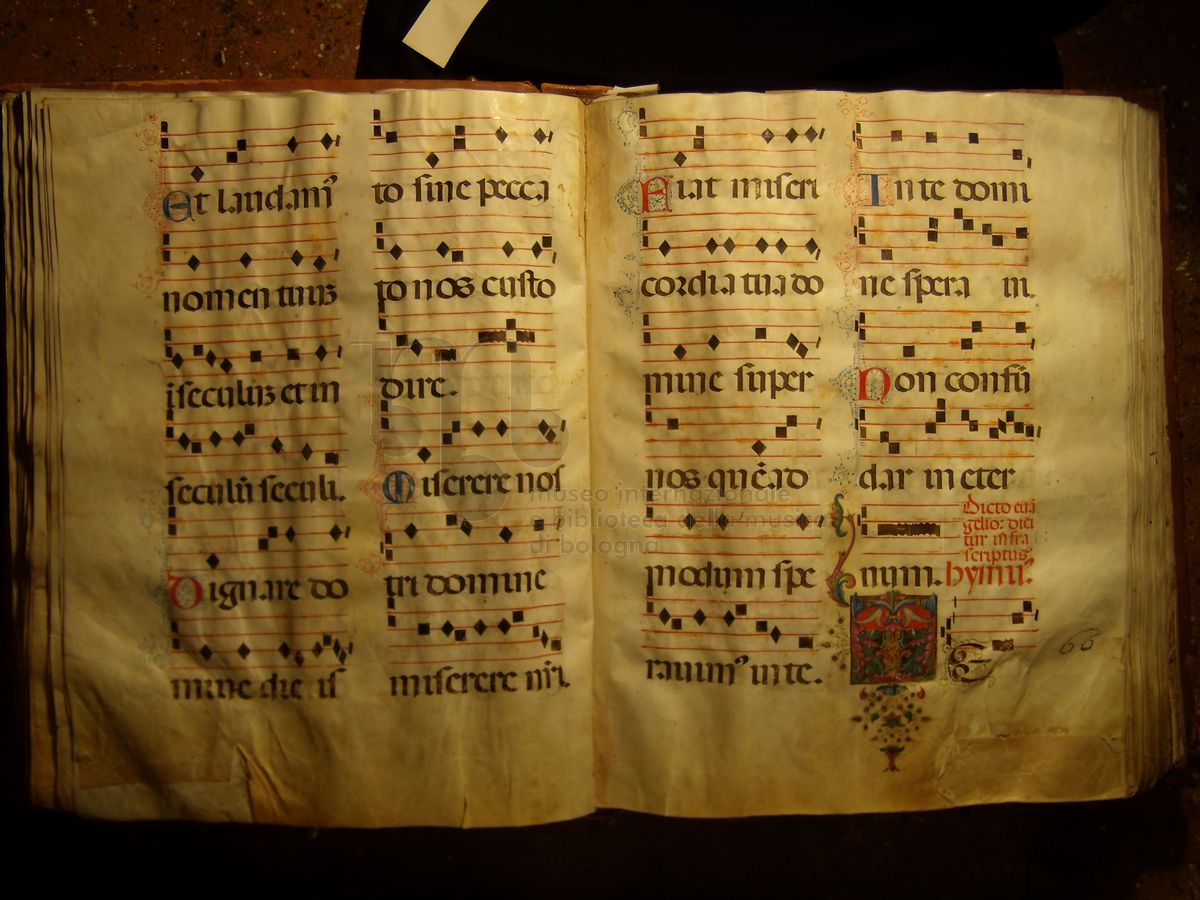 Et laudam⁹
nomen tuuꝫ
i seculuꝫ et in
seculū seculi.
Dignare do
mine die is
to sine pecca
to nos custo
dire.
Miserere nos
tri domine
miserere nr̄i.
Fiat miseri
cordia tua do
mine super
nos quēad
modum spe
rauim⁹ in te.
In te domi
ne spera ui.
Non confū
dar in eter
num.
Dicto euā
gelio: dici
tur infra
scriptus
hymn⁹.
T E
66
museo internazionale
e biblioteca della musica
di bologna